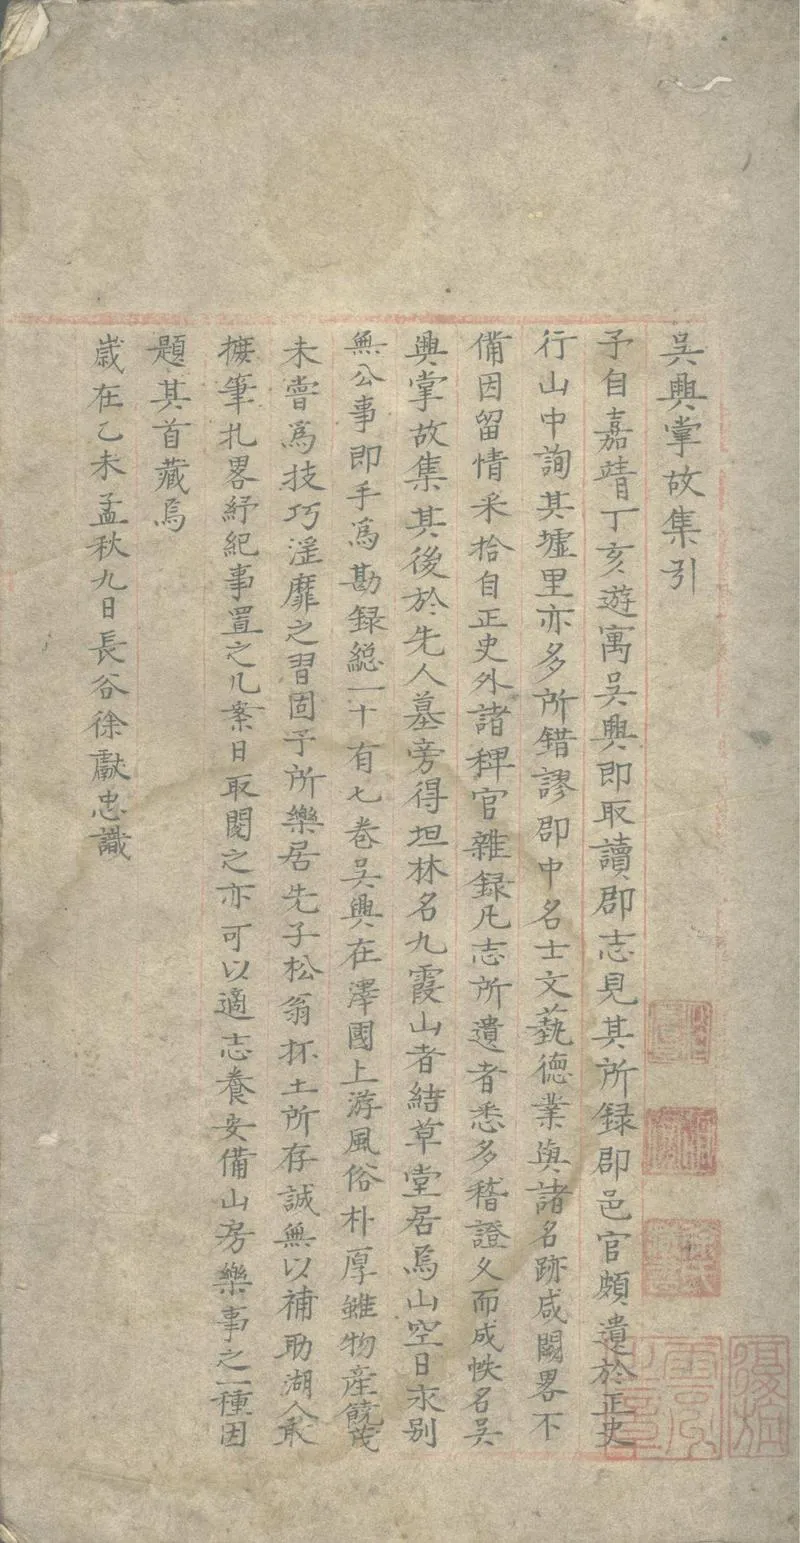 吳興掌故集引
予自嘉靖丁亥遊寓吳興即取讀郡志見其所録郡邑官頗遺於正史
行山中詢其墟里亦多所錯謬郡中名士文蓺德業與諸名跡咸闕畧不
備因留情采拾自正史外諸稗官雜録凡志所遺者悉多稽證久而成帙名吳
興掌故集其後於先人墓旁得坦林名九霞山者結草堂居焉山空日永别
無公事即手爲勘録總一十有七卷吳興在澤國上游風俗朴厚雖物産饒茂
未嘗爲技巧滛靡之習固予所樂居先子松翁抔土所存誠無以補助湖人聚
摭筆扎畧紓紀事置之几案日取閱之亦可以適志養安備山房樂事之一種因
題其首藏焉
歳在乙未孟秋九日長谷徐獻忠識